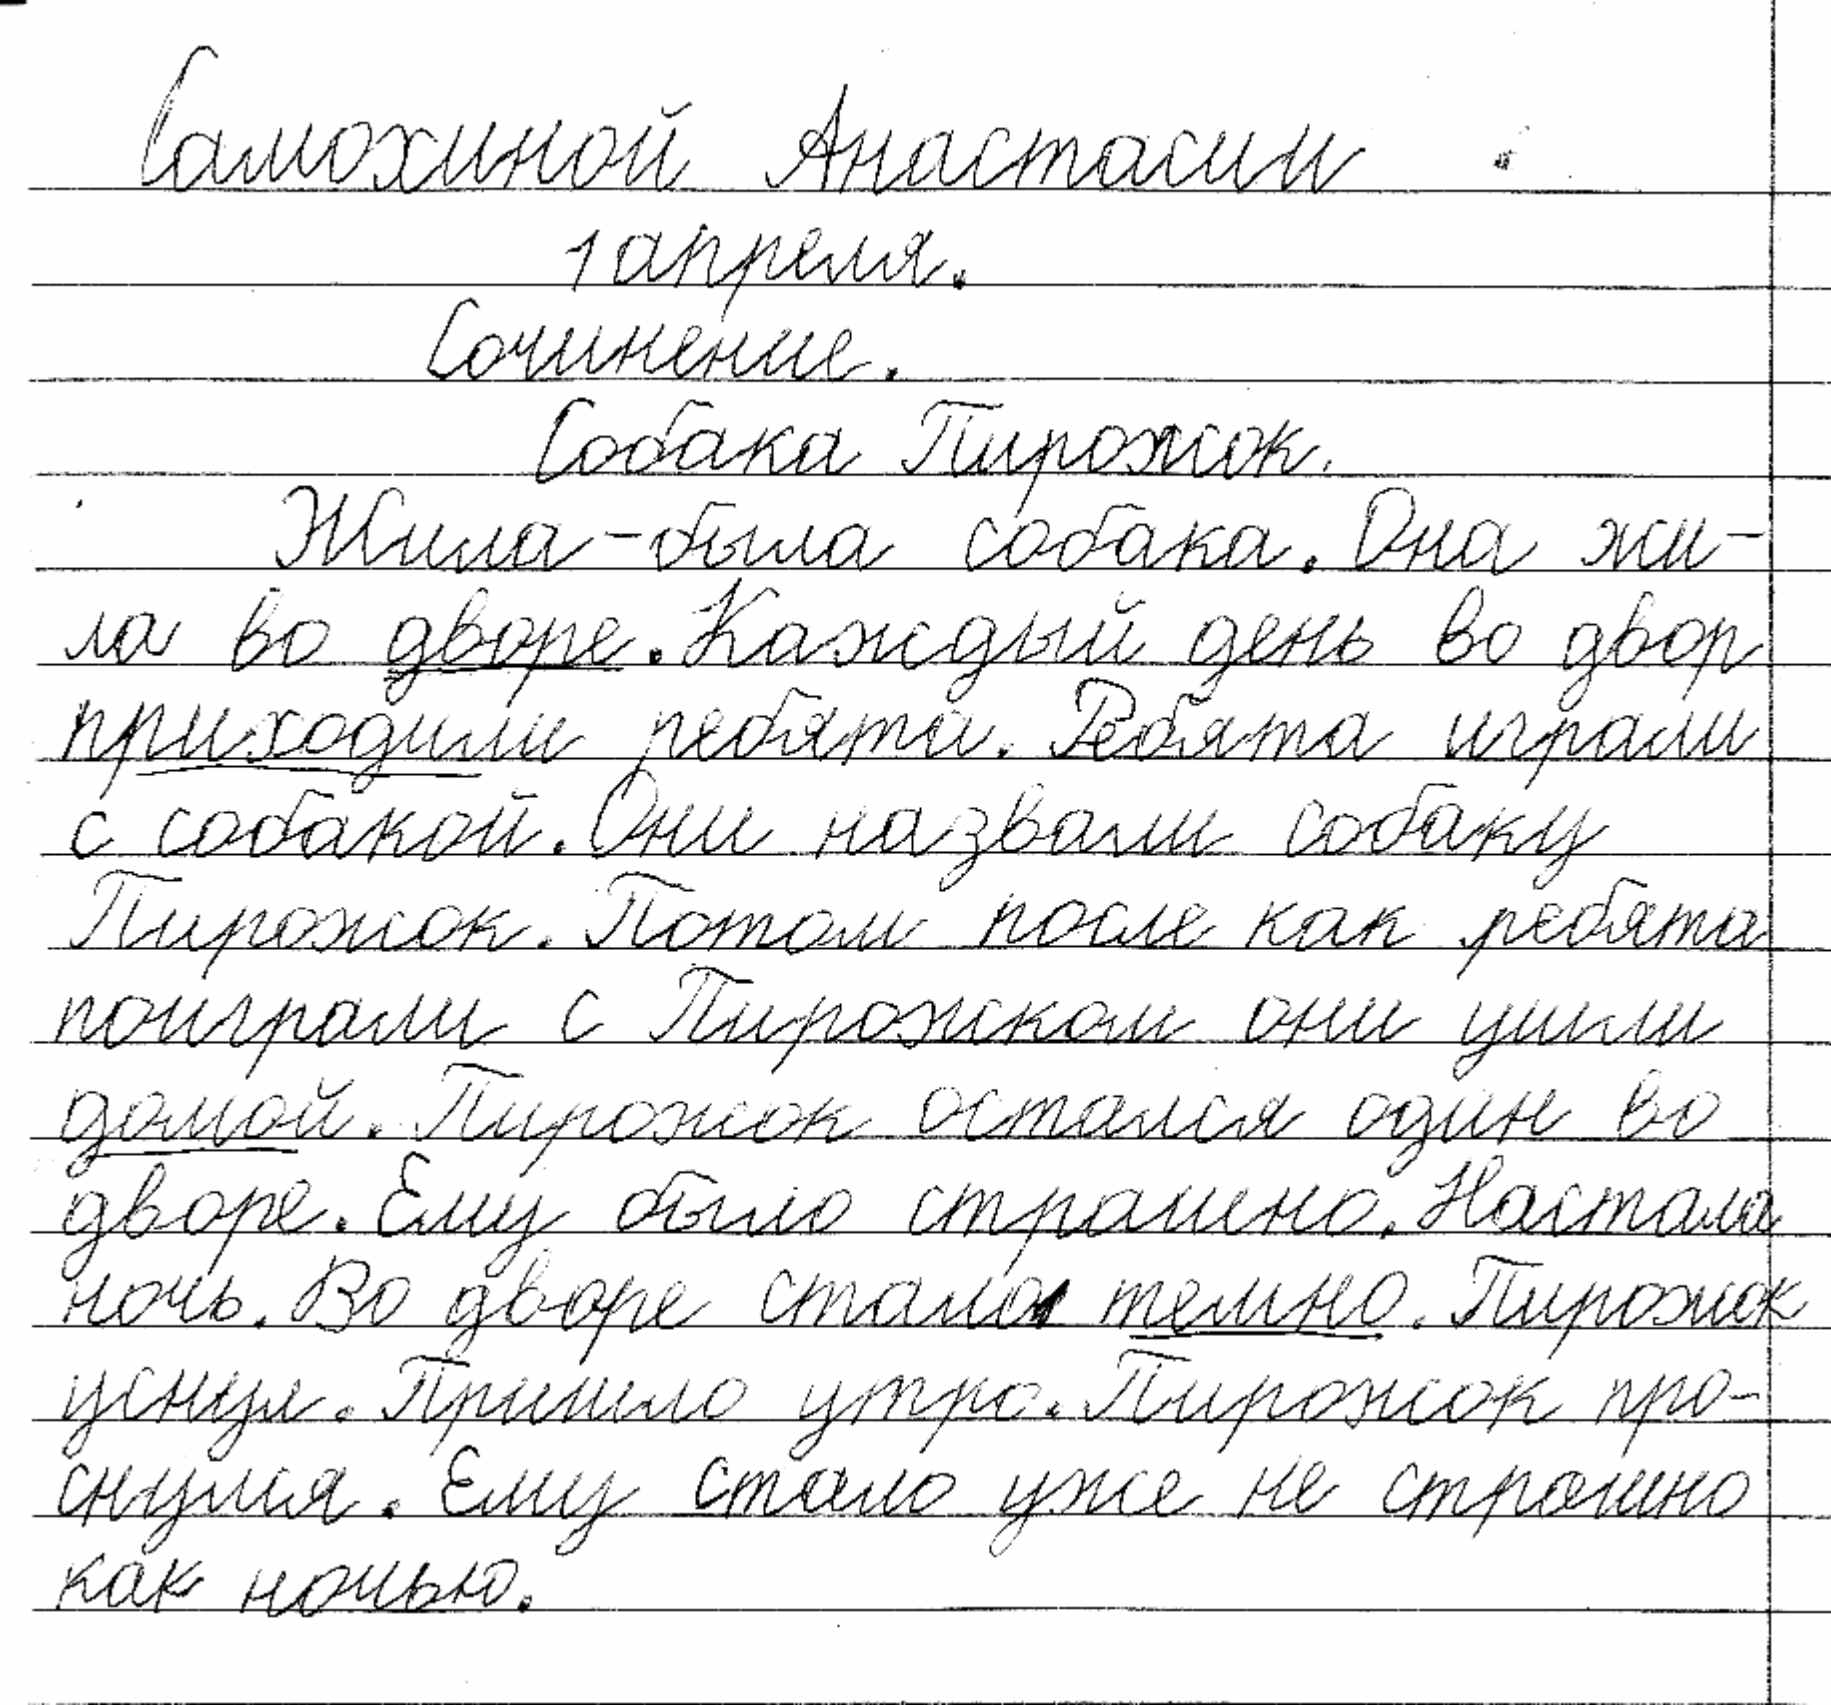 Самохиной Анастасии
1 апреля.
Сочинение.
Собака Пирожок.
Жила-была собака. Она жи-
ла во дворе. Каждый день во двор
приходили ребята. Ребята играли
с собакой. Они назвали собаку
Пирожок. Потом после как ребята
поиграли с Пирожком они ушли
домой. Пирожок остался один во
дворе. Ему было страшно. Настала
ночь. Во дворе стало темно. Пирожок
уснул. Пришло утро. Пирожок про-
снулся. Ему стало уже не страшно
как ночью.